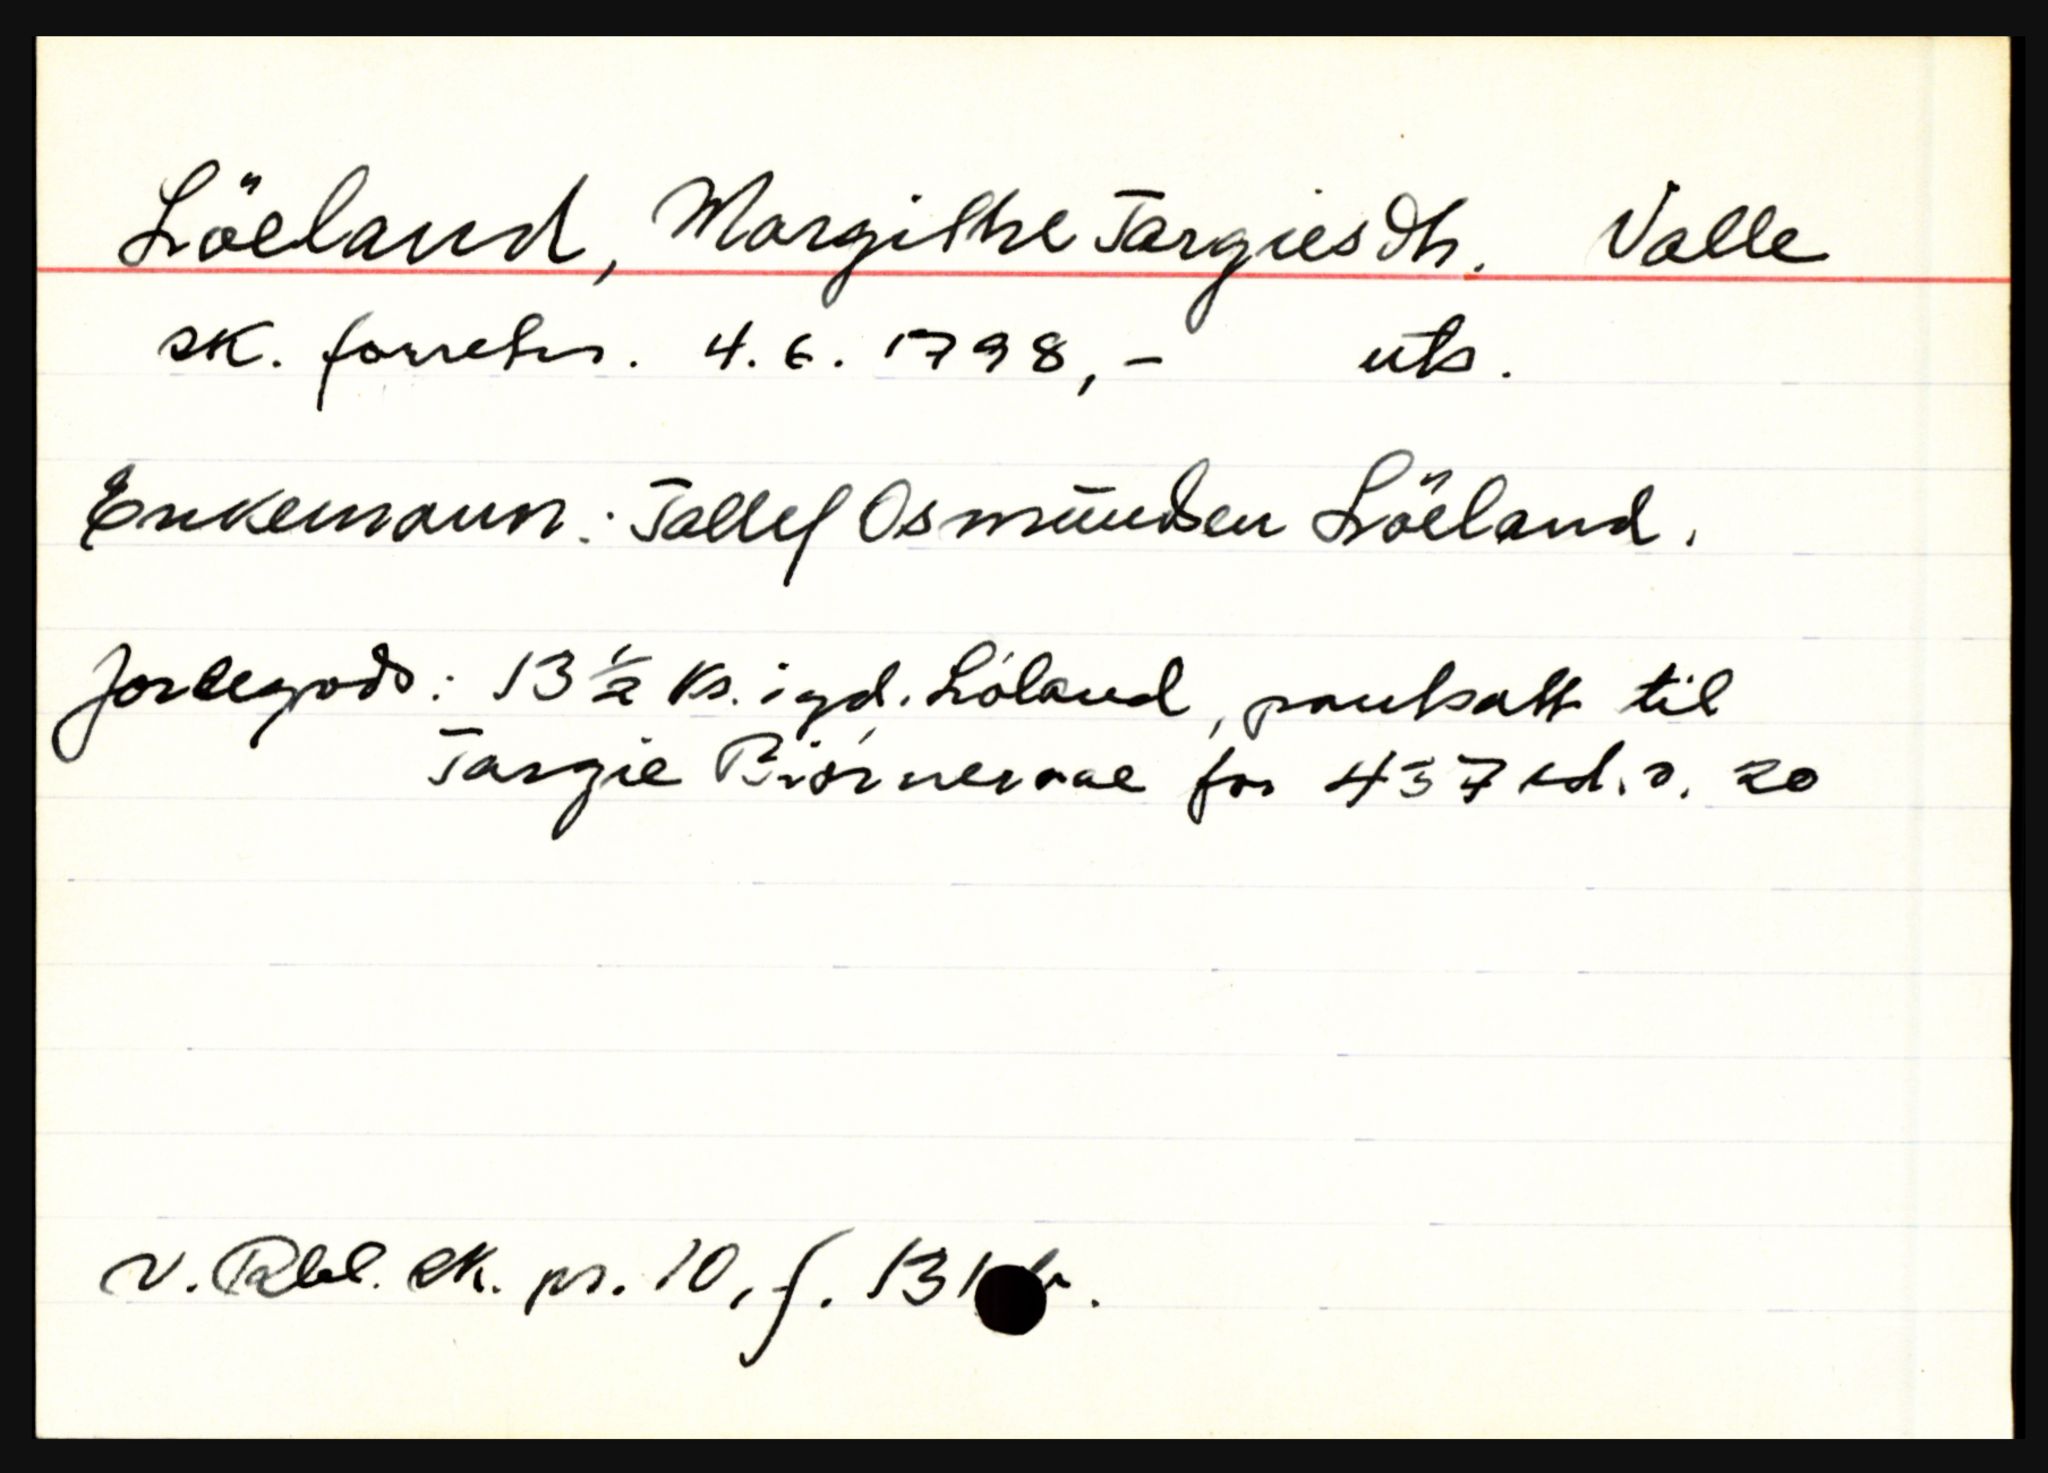 Löeland, Margithe Targiesdtr. Valle
sk. forretn. 4.6. 1798, - uts.
Enkemann: Tallef Osmündsen Löeland.
Jordegods: 13 1/2 ks. i gd. Lóland, pantsatt til
Targie Biórnevae for 437 rd. 2. 20
V. Rbl. sk. pr. 10, f. 131 .